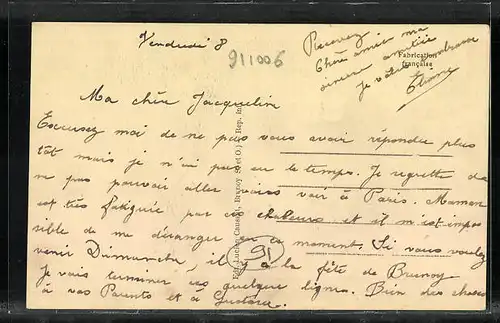 Vendredi 8
911006
Recevez
Chère amie ma
sincère amitié
Je vous embrasse
Fabrication
française
Ma chère Jacqueline
Excusez moi de ne pas vous avoir répondu plus
tôt mais je n'ai pas eu le temps. Je regrette de
ne pas pouvoir aller vous voir à Paris. Maman
est très fatiguée par ces chaleurs et il m'est impos
sible de me déranger en ce moment. Si vous voulez
venir Dimanche, il y a la fête de Brunoy
Je vais terminer ces quelques lignes. Bien des choses
à vos Parents et à
Edit. Lucien Brunoy (S.-et-O.) Rep. Int.
91